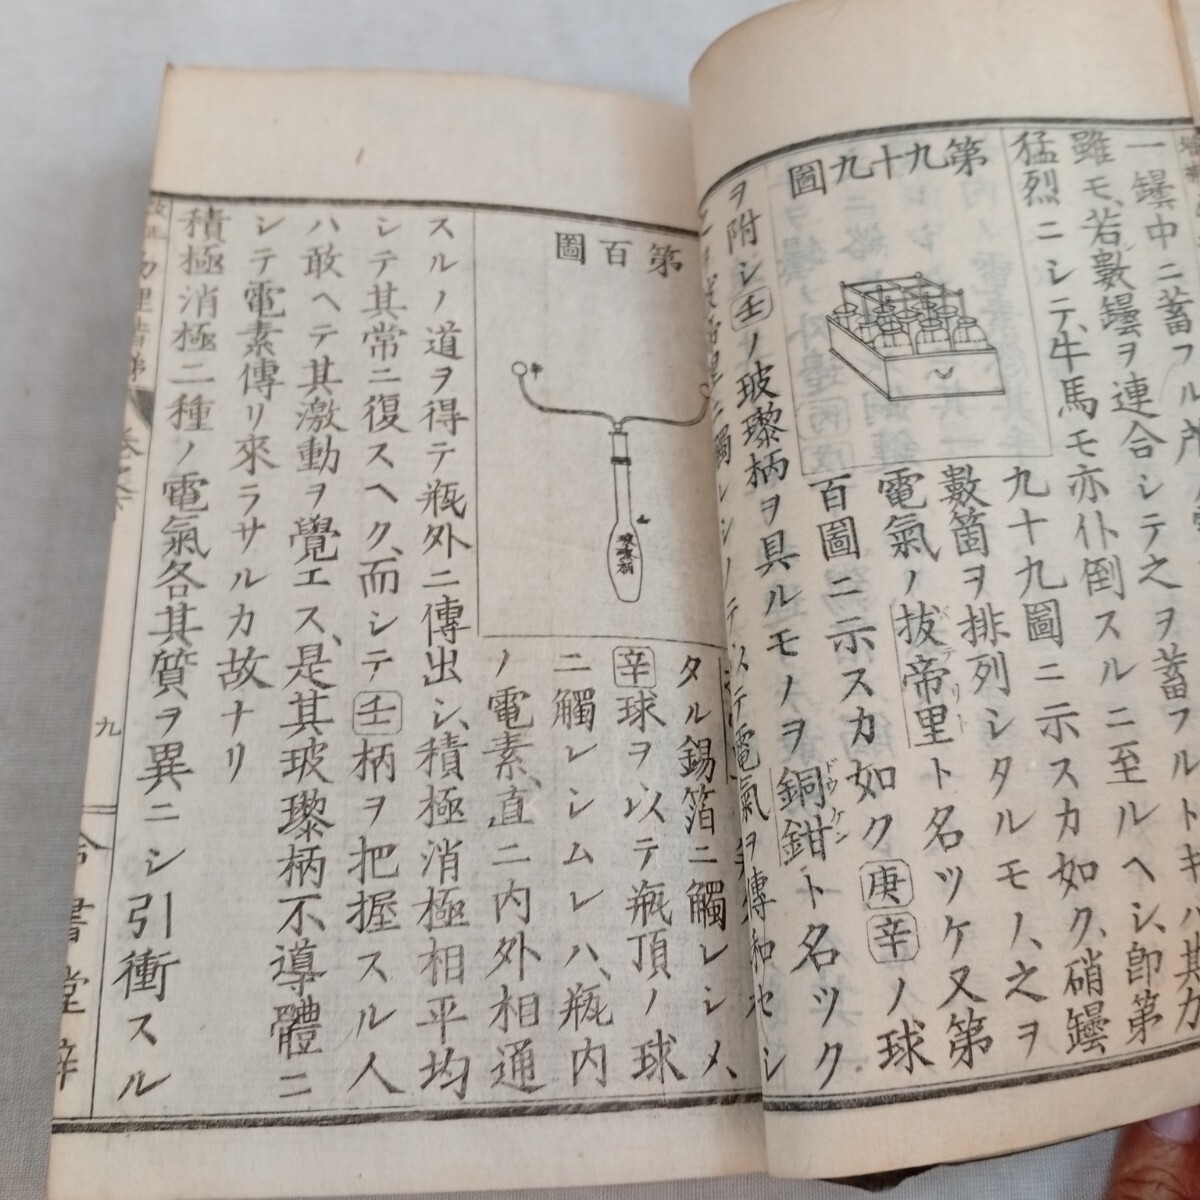 一罎中ニ蓄フル所
雖モ、若數罎ヲ連合シテ之ヲ蓄フルトキハ其力
猛烈ニシテ、牛馬モ亦仆倒スルニ至ルヘシ、卽第
九十九圖ニ示スカ如ク、硝罎
數箇ヲ排列シタルモノ、之ヲ
電氣ノ拔帝里ト名ツケ又第
バテリー
百圖ニ示スカ如ク庚辛ノ球
第九十九圖
ヲ附シ壬ノ玻瓈柄ヲ具ルモノヲ銅鉗ト名ツク
ドウケン
シテ以テ電氣ヲ傳和セシ
第百圖
玻瓈柄
タル錫箔ニ觸レシメ、
辛球ヲ以テ瓶頂ノ球
ニ觸レシムレハ、瓶内
ノ電素、直ニ内外相通
スルノ道ヲ得テ瓶外ニ傳出シ、積極消極相平均
シテ其常ニ復スヘク、而シテ壬柄ヲ把握スル人
ハ敢ヘテ其激動ヲ覺エス、是其玻瓈柄不導體ニ
シテ電素傳リ來ラサルカ故ナリ
積極消極二種ノ電氣各其質ヲ異ニシ引衝スル
物理階梯
九